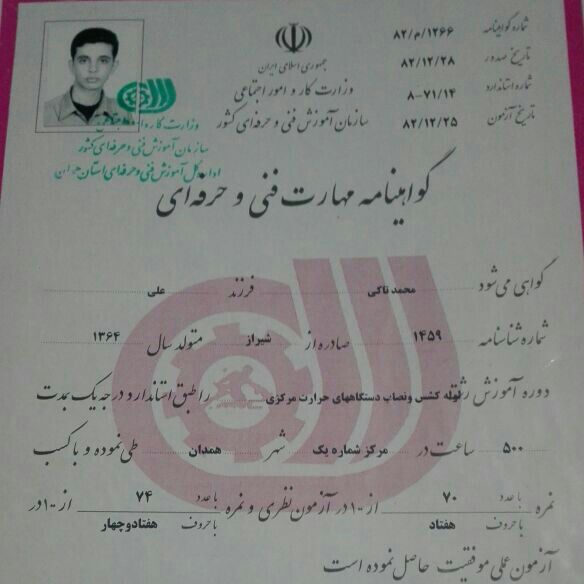 شماره گواهینامه ۸۲/م/۱۲۶۶
جمهوری اسلامی ایران
تاریخ صدور ۸۲/۱۲/۲۸
وزارت کار و امور اجتماعی
شماره استاندارد ۸-۷۱/۱۴
سازمان آموزش فنی و حرفه‌ای کشور
تاریخ آزمون ۸۲/۱۲/۲۵
وزارت کار و امور اجتماعی
سازمان آموزش فنی و حرفه‌ای کشور
اداره کل آموزش فنی و حرفه‌ای استان همدان
گواهینامه مهارت فنی و حرفه‌ای
گواهی می‌شود محمد تاکی فرزند علی
شماره شناسنامه ۱۴۵۹ صادره از شیراز متولد سال ۱۳۶۴
دوره آموزش رشته لوله کشی ونصاب دستگاههای حرارت مرکزی را طبق استاندارد درجه یک بمدت
۵۰۰ ساعت در مرکز شماره یک شهر همدان طی نموده و با کسب
نمره با عدد ۷۰ از ۱۰۰ در آزمون نظری و نمره با عدد ۷۴ از ۱۰۰ در
با حروف هفتاد با حروف هفتادوچهار
آزمون عملی موفقیت حاصل نموده است